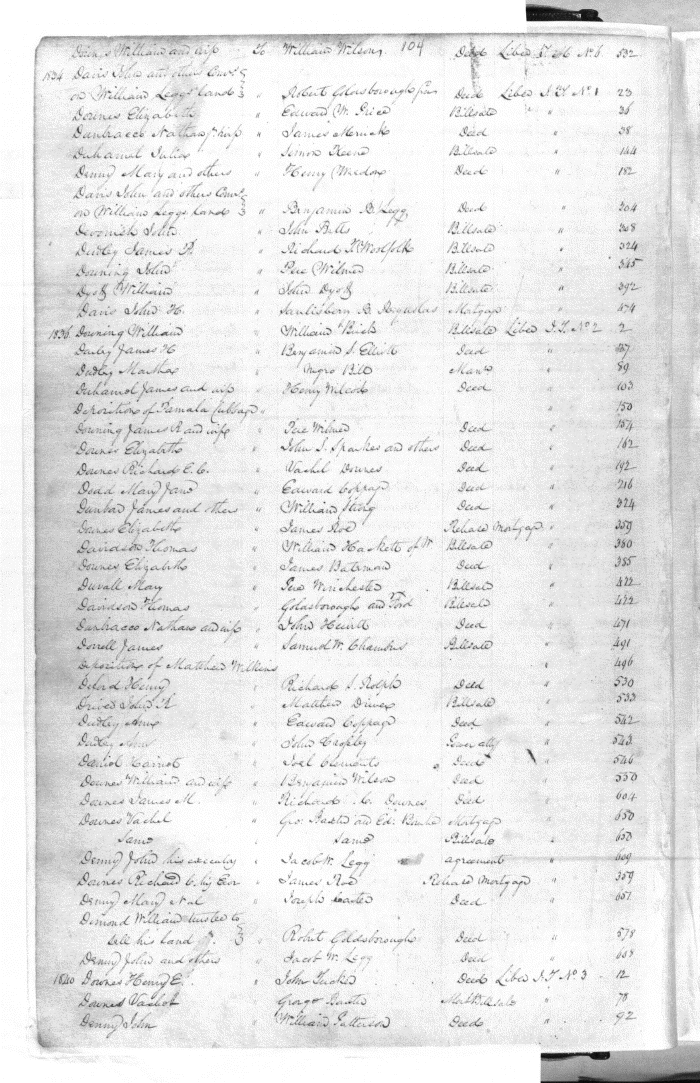 Downes William and wife To William Wilson, 104 Deed Liber T M No 6 532
1834 Davis John and others Comrs
on William Leggs Land " Robert Goldsborough Deed Liber J.T. No 1 23
Downes Elizabeth " Edward W. Price Billsale " 36
Dunbracco Nathan & wife " James Merrick Deed " 38
Duhamel Julia " Simon Keene Billsale " 144
Denny Mary and others " Henry Weedon Deed " 182
Davis John and others Comrs
on William Leggs Land " Benjamin B. Legg Deed " 204
Devonish John " John Betts Billsale " 308
Dudley James A. " Richard Billsale " 324
Downing John " Pere Wilmer Billsale " 345
Dyott William " John Dyott Billsale " 392
Davis John H. " B. Mortgage " 474
1836 Downing William " William Billsale Liber J.T. No 2 2
Dailey James H " Benjamin S. Elliott Deed " 27
Dudley Martha " Negro Bill Mans " 89
Duhamel James and wife " Henry Wilcox Deed " 103
Deposition of Pamala Cubbage " " 150
Downing James R and wife " Pere Wilmer Deed " 154
Downes Elizabeth " John S. Sparkes and others Deed " 162
Downes Richard E. C. " Vachel Downes Deed " 192
Dodd Mary Jane " Edward Coppage Deed " 216
Dunbar James and others " William Deed " 324
Downes Elizabeth " James Roe Release Mortgage " 359
Davidson Thomas " William Hackett of W Billsale " 380
Downes Elizabeth " James Bateman Deed " 385
Duvall Mary " Pere Winchester Billsale " 422
Davidson Thomas " Goldsborough and Ford Billsale " 422
Dunbracco Nathan and wife " John Hewitt Deed " 471
Dorrell James " Samuel W. Chambers Billsale " 491
Deposition of Matthew Wilkins " 496
Deford Henry " Richard S. Rolph Deed " 530
Driver John R " Matthew Driver Billsale " 533
Dudley Ann " Edward Coppage Deed " 542
Dudley Ann " John Cropley Powr atty " 543
Daniel Harriet " Joel Clements Deed " 546
Downes William and wife " Benjamin Wilson Deed " 550
Downes James M. " Richard C. Downes Deed " 604
Downes Vachel " Geo. Baxter and Ed. Mortgage " 650
Same " Same Billsale " 650
Denny John his executor " Jacob W. Legg agreement " 609
Downes Richard C. his Exr " James Roe Release Mortgage " 359
Denny Mary " Joseph Deed " 651
Demond William trustee to
sell his land " Robert Goldsborough Deed " 578
Denny John and others " Jacob W. Legg Deed " 608
1840 Downes Henry E. " John Tucker Deed Liber J.T. No 3 12
Downes Vachel " George Baxter Mo & Billsale " 78
Denny John " William Patterson Deed " 92